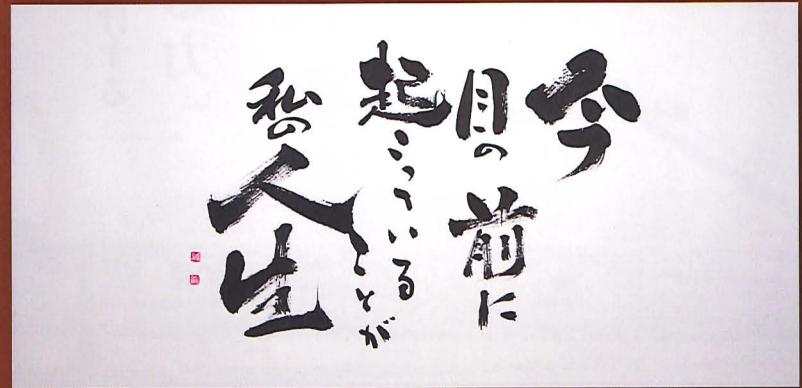 今
目の前に
起こっていることが
私の人生